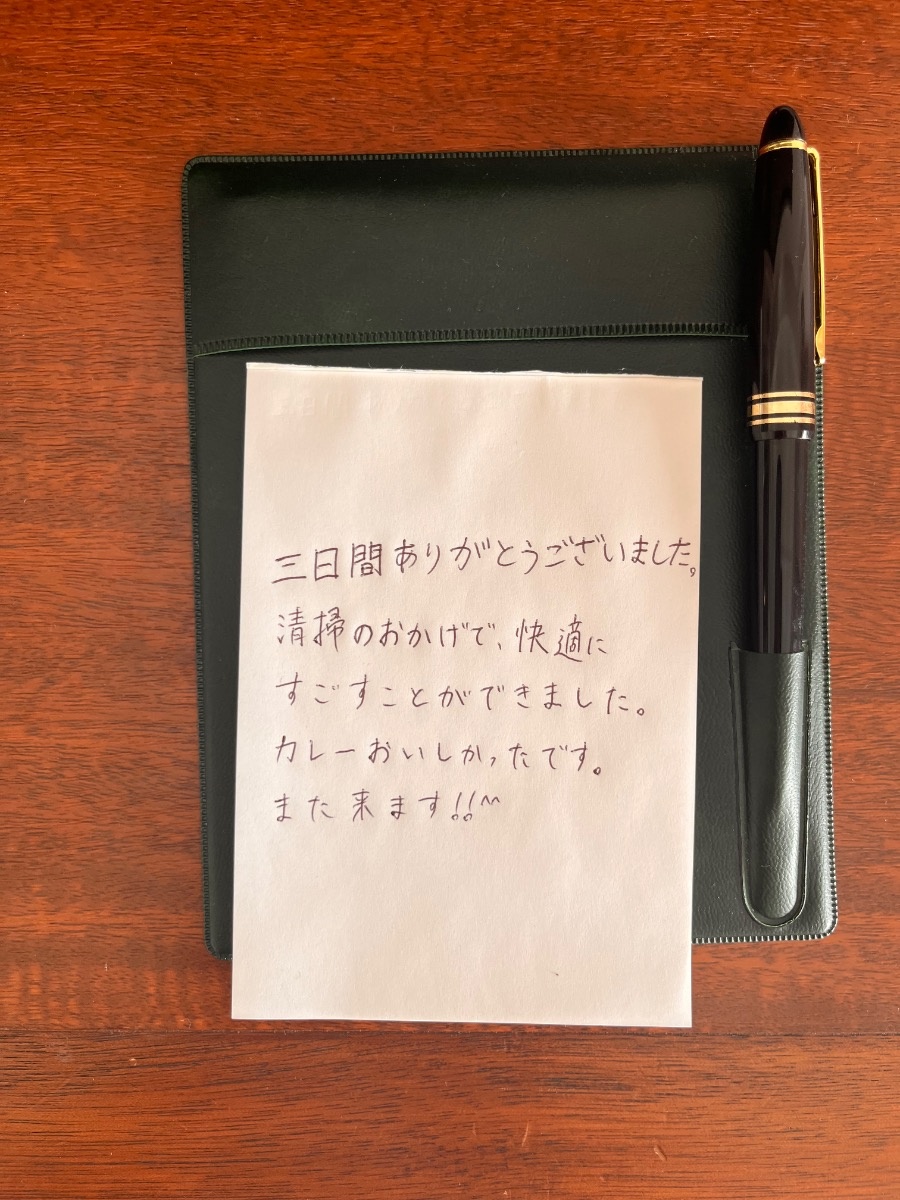 三日間ありがとうございました。
清掃のおかげで、快適に
すごすことができました。
カレーおいしかったです。
また来ます!!^^